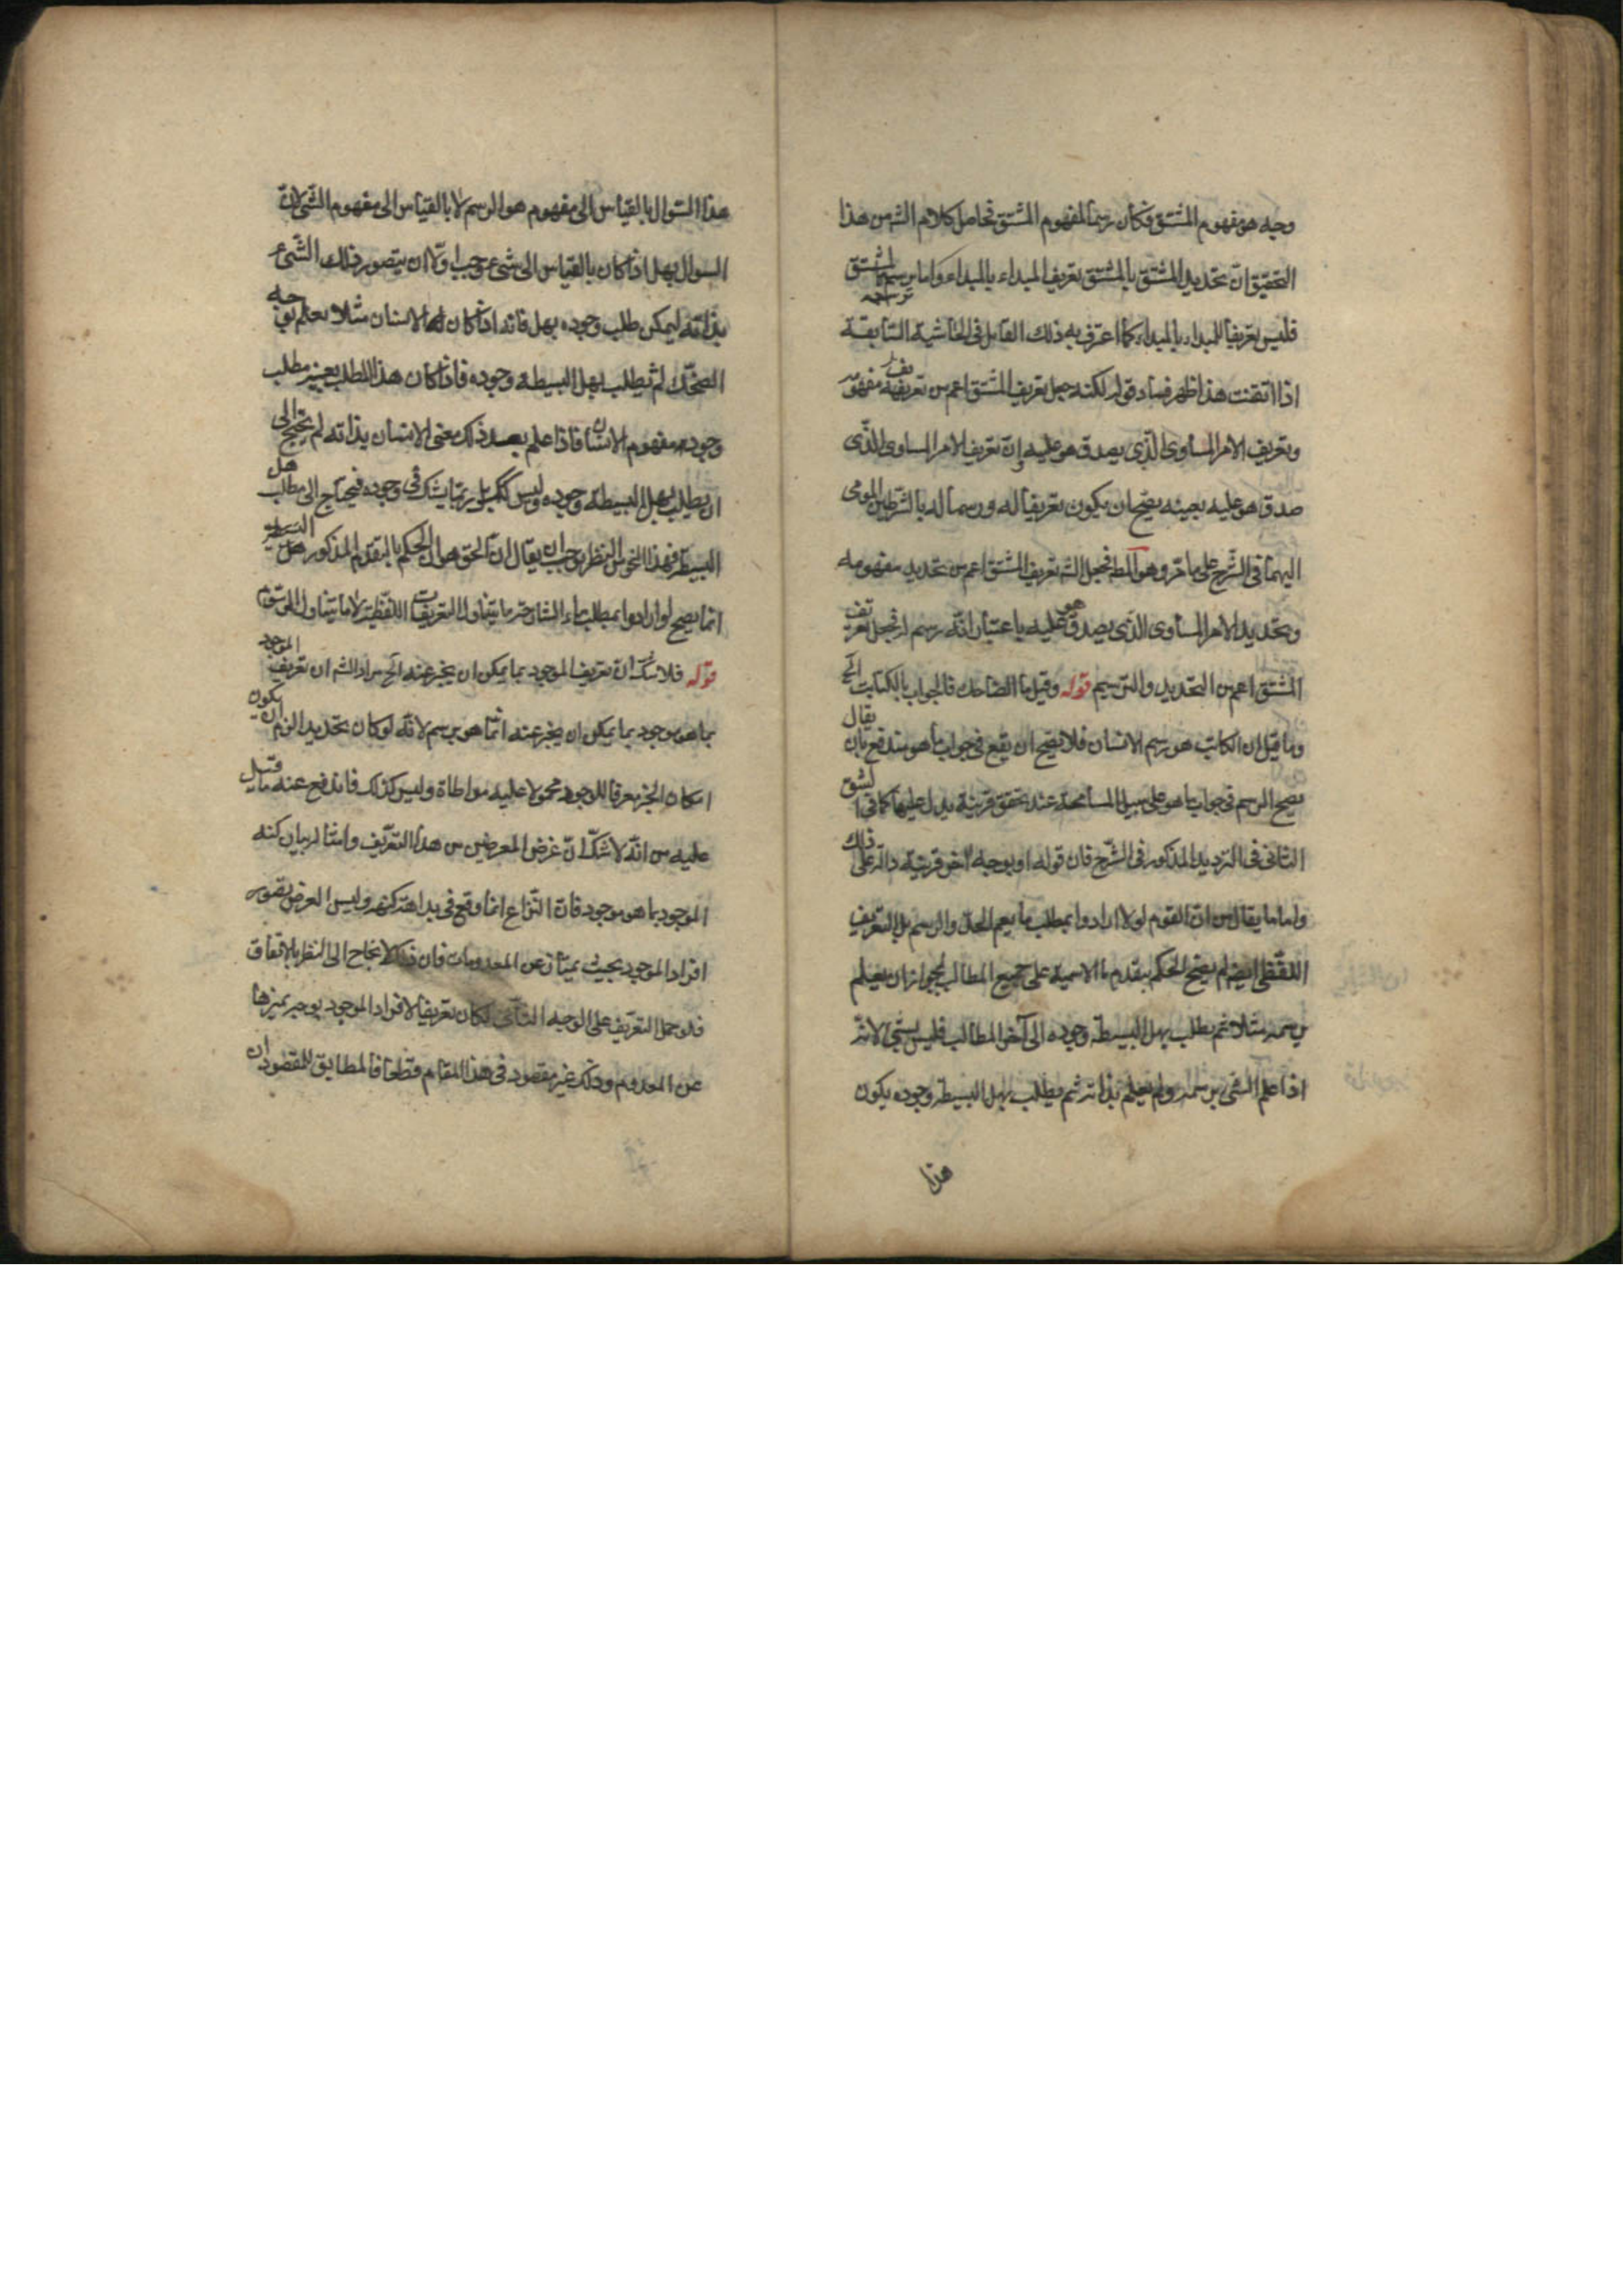 وجه هو مفهوم المشتق فكان رسما لمفهوم المشتق فحاصل كلام الشه من هذا
التحقيق ان تحديد المشتق بالمشتق تعريف المبداء بالمبداء واما رسم المشتق
فليس تعريفا للمبداء بالمبداء كما اعترف به ذلك القايل فى الحاشية السابقة
اذا اتقنت هذا ظهر فساد قوله لكنه جعل تعريف المشتق اعم من تعريف مفهومه
وتعريف الامر المساوى الذى يصدق هو عليه وان تعريف الامر المساوى الذى
صدق هو عليه بعينه يصح ان يكون تعريفا له ورسما له بالشرطين المومى
اليهما فى الشرح على ما مر وهو الحد فجعل الشه تعريف المشتق اعم من تحديد مفهومه
وتحديد الامر المساوى الذى يصدق هو عليه باعتبار انه رسم له فجعل تعريف
المشتق اعم من التحديد والترسيم قوله وقيل ما الضاحك فالجواب بالكتابت الخ
وما قيل ان الكاتب هو رسم الانسان فلا يصح ان يقع فى جواب ما هو مندفع بان يقال
يصح الرسم فى جواب ما هو على سبيل المسامحة عند تحقق قرينة يدل عليها كما فى الشق
الثانى فى الترديد المذكور فى الشرح فان قوله او بوجه اخر قرينة دالة على ذلك
واما ما يقال من ان القوم لولا ارادوا بمطلب ما يعم الحد والرسم بل التعريف
اللفظى ايضا لم يصح الحكم بتقدم ما الاسمية على جميع المطالب لجواز ان يعلم
برسمه مثلا ثم يطلب بهل البسيطة وجوده الى آخر المطالب فليس بشئ لانه
اذا علم الشئ برسمه ولم يعلم بذاته ثم يطلب بهل البسيطة وجوده يكون
هذا
هذا السؤال بالقياس الى مفهوم هو الرسم لا بالقياس الى مفهوم الشئ لان
السوال بهل اذا كان بالقياس الى شئ وجب اولا ان يتصور ذلك الشئ
بذاته ليمكن طلب وجوده بهل فانه اذا كان الانسان مثلا يعلم بوجه
الضحك ثم يطلب بهل البسيطة وجوده فاذا كان هذا الطلب بعينه مطلب
وجود مفهوم الانسان فاذا علم بعد ذلك معنى الانسان بذاته لم يحتج الى
ان يطلب بهل البسيطة وجوده وليس كك بل ربما يشك فى وجوده فيحتاج الى مطلب هل
البسيطة فهذا النحو من النظر يوجب ان يقال ان الحق هو ان الحكم بالتقدم المذكور هل البسيطة
انما يصح لو ارادوا بمطلب ماء الشارحة ما يتناول التعريفات اللفظية لا ما يتناول الرسوم
قوله فلا شك ان تعريف الموجود بما يمكن ان يخبر عنه الخ مراد الشه ان تعريف الموجود
بما هو موجود بما يمكن ان يخبر عنه انما هو رسم لانه لو كان تحديدا لزم ان يكون
امكان الخبر معرفا للوجود محمولا عليه مواطاة وليس كذلك فاندفع عنه ما قيل
عليه من انه لا شك ان غرض المعرضين من هذا التعريف وامثاله بيان كنه
الموجود بما هو موجود فان النزاع انما وقع فى بداهة كنهه وليس الغرض تصور
افراد الموجود بحيث يمتاز عن المعدومات فان ذلك لا يحتاج الى النظر بالاتفاق
فلو حمل التعريف على الوجه الثانى لكان تعريفا لافراد الموجود بوجه يميزها
عن المعدوم وذلك غير مقصود فى هذا المقام قطعا فالمطابق للمقصود ان